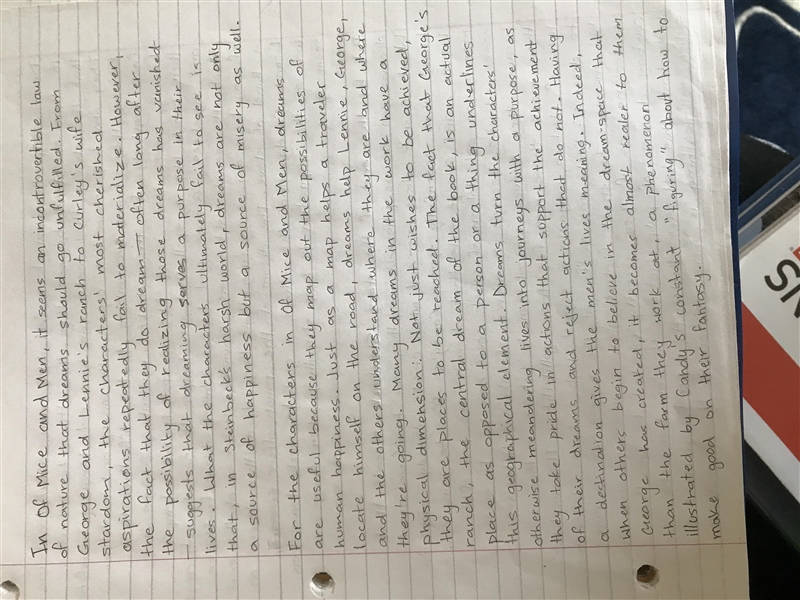 In Of Mice and Men, it seems an incontrovertible law
of nature that dreams should go unfulfilled. From
George and Lennie's ranch to Curley's wife
stardom, the characters' most cherished
aspirations repeatedly fail to materidlize. However,
the fact that they do dream — often long after
the possiblity of realizing those dreams has vanished
— suggests that dreaming serves a purpose in their
lives. What the characters ultimately fail to see is
that, in Stairbeck's harsh world, dreams are not only
a source of happiness but a source of misery as well.
For the characters in Of Mice and Men, dreams
are useful because they map out the possibilities of
human happiness. Just as a map helps a traveler
locate himself on the road, dreams help Lennie, George,
and the others understand where they are and where
they're going. Many dreams in the work have a
physical dimension: Not just wishes to be achieved,
they are places to be reached. The fact that George's
ranch, the central dream of the book, is an actual
place as opposed to a person or a thing underlines
this geographical element. Dreams turn the characters'
otherwise meandering lives into journeys with a purpose, as
they take pride in actions that support the achievement
of their dreams and reject actions that do not. Having
a destination gives the men's lives meaning. Indeed,
when others begin to believe in the dream-space that
George has created, it becomes almost realer to them
than the farm they work at, a phenomenon
illustrated by Candy's constant "figuring" about how to
make good on their fantasy.
SN